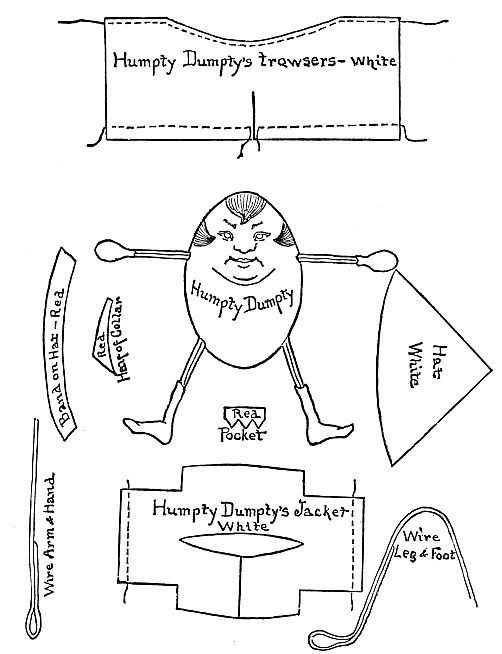 Humpty Dumpty's trowsers - white
Humpty Dumpty
Band on Hat - Red
Red
Half of Collar
Hat
White
Red
Pocket
Wire Arm & Hand
Humpty Dumpty's Jacket
White
Wire
Leg & Foot